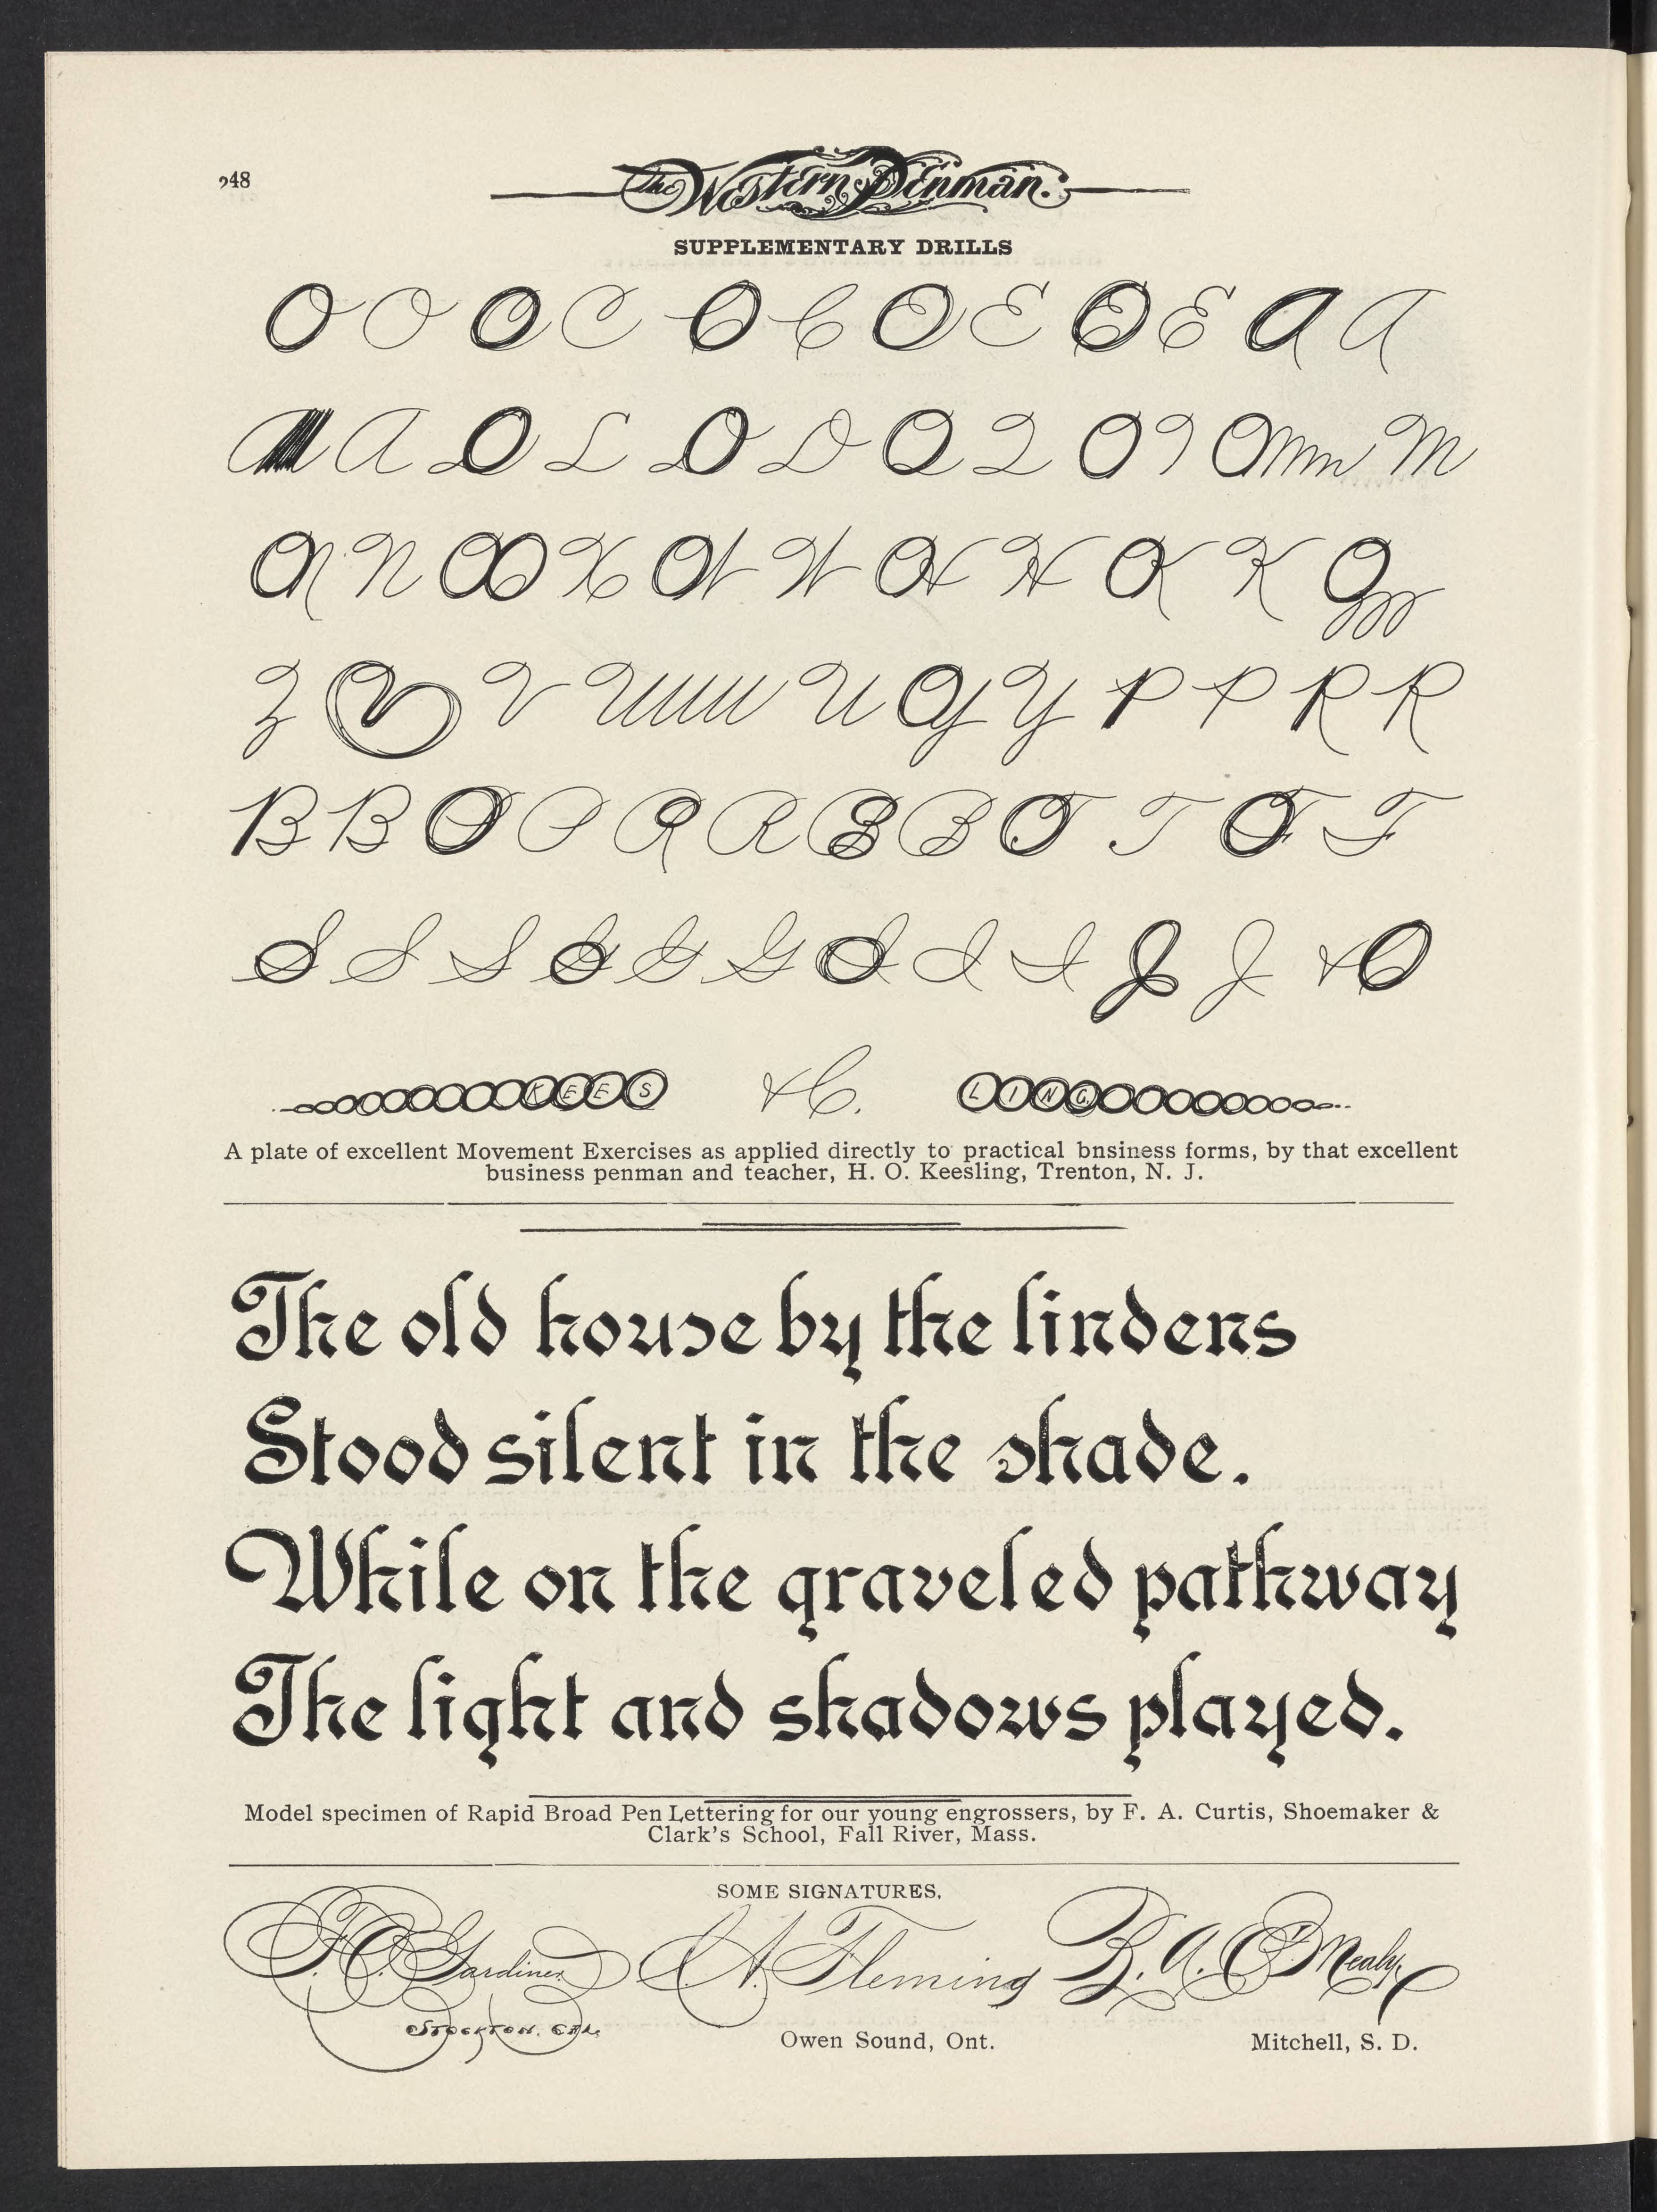 248
The Western Penman.
SUPPLEMENTARY DRILLS
O O O C C O C O E O E A A
A A O L O D Q Q O 9 O m m m M
A N O X X O W O H H O K K Q
Z V V U U U Y Y P P R R
B B O P R R B B O T O F
S S S G G G O I I J J & O
K E E S & C. L I N G
A plate of excellent Movement Exercises as applied directly to practical bnsiness forms, by that excellent
business penman and teacher, H. O. Keesling, Trenton, N. J.
The old house by the lindens
Stood silent in the shade.
While on the graveled pathway
The light and shadows played.
Model specimen of Rapid Broad Pen Lettering for our young engrossers, by F. A. Curtis, Shoemaker &
Clark's School, Fall River, Mass.
SOME SIGNATURES.
F. O. Gardiner A. Fleming B. A. O'Mealy
Stockton, Cal.
Owen Sound, Ont. Mitchell, S. D.